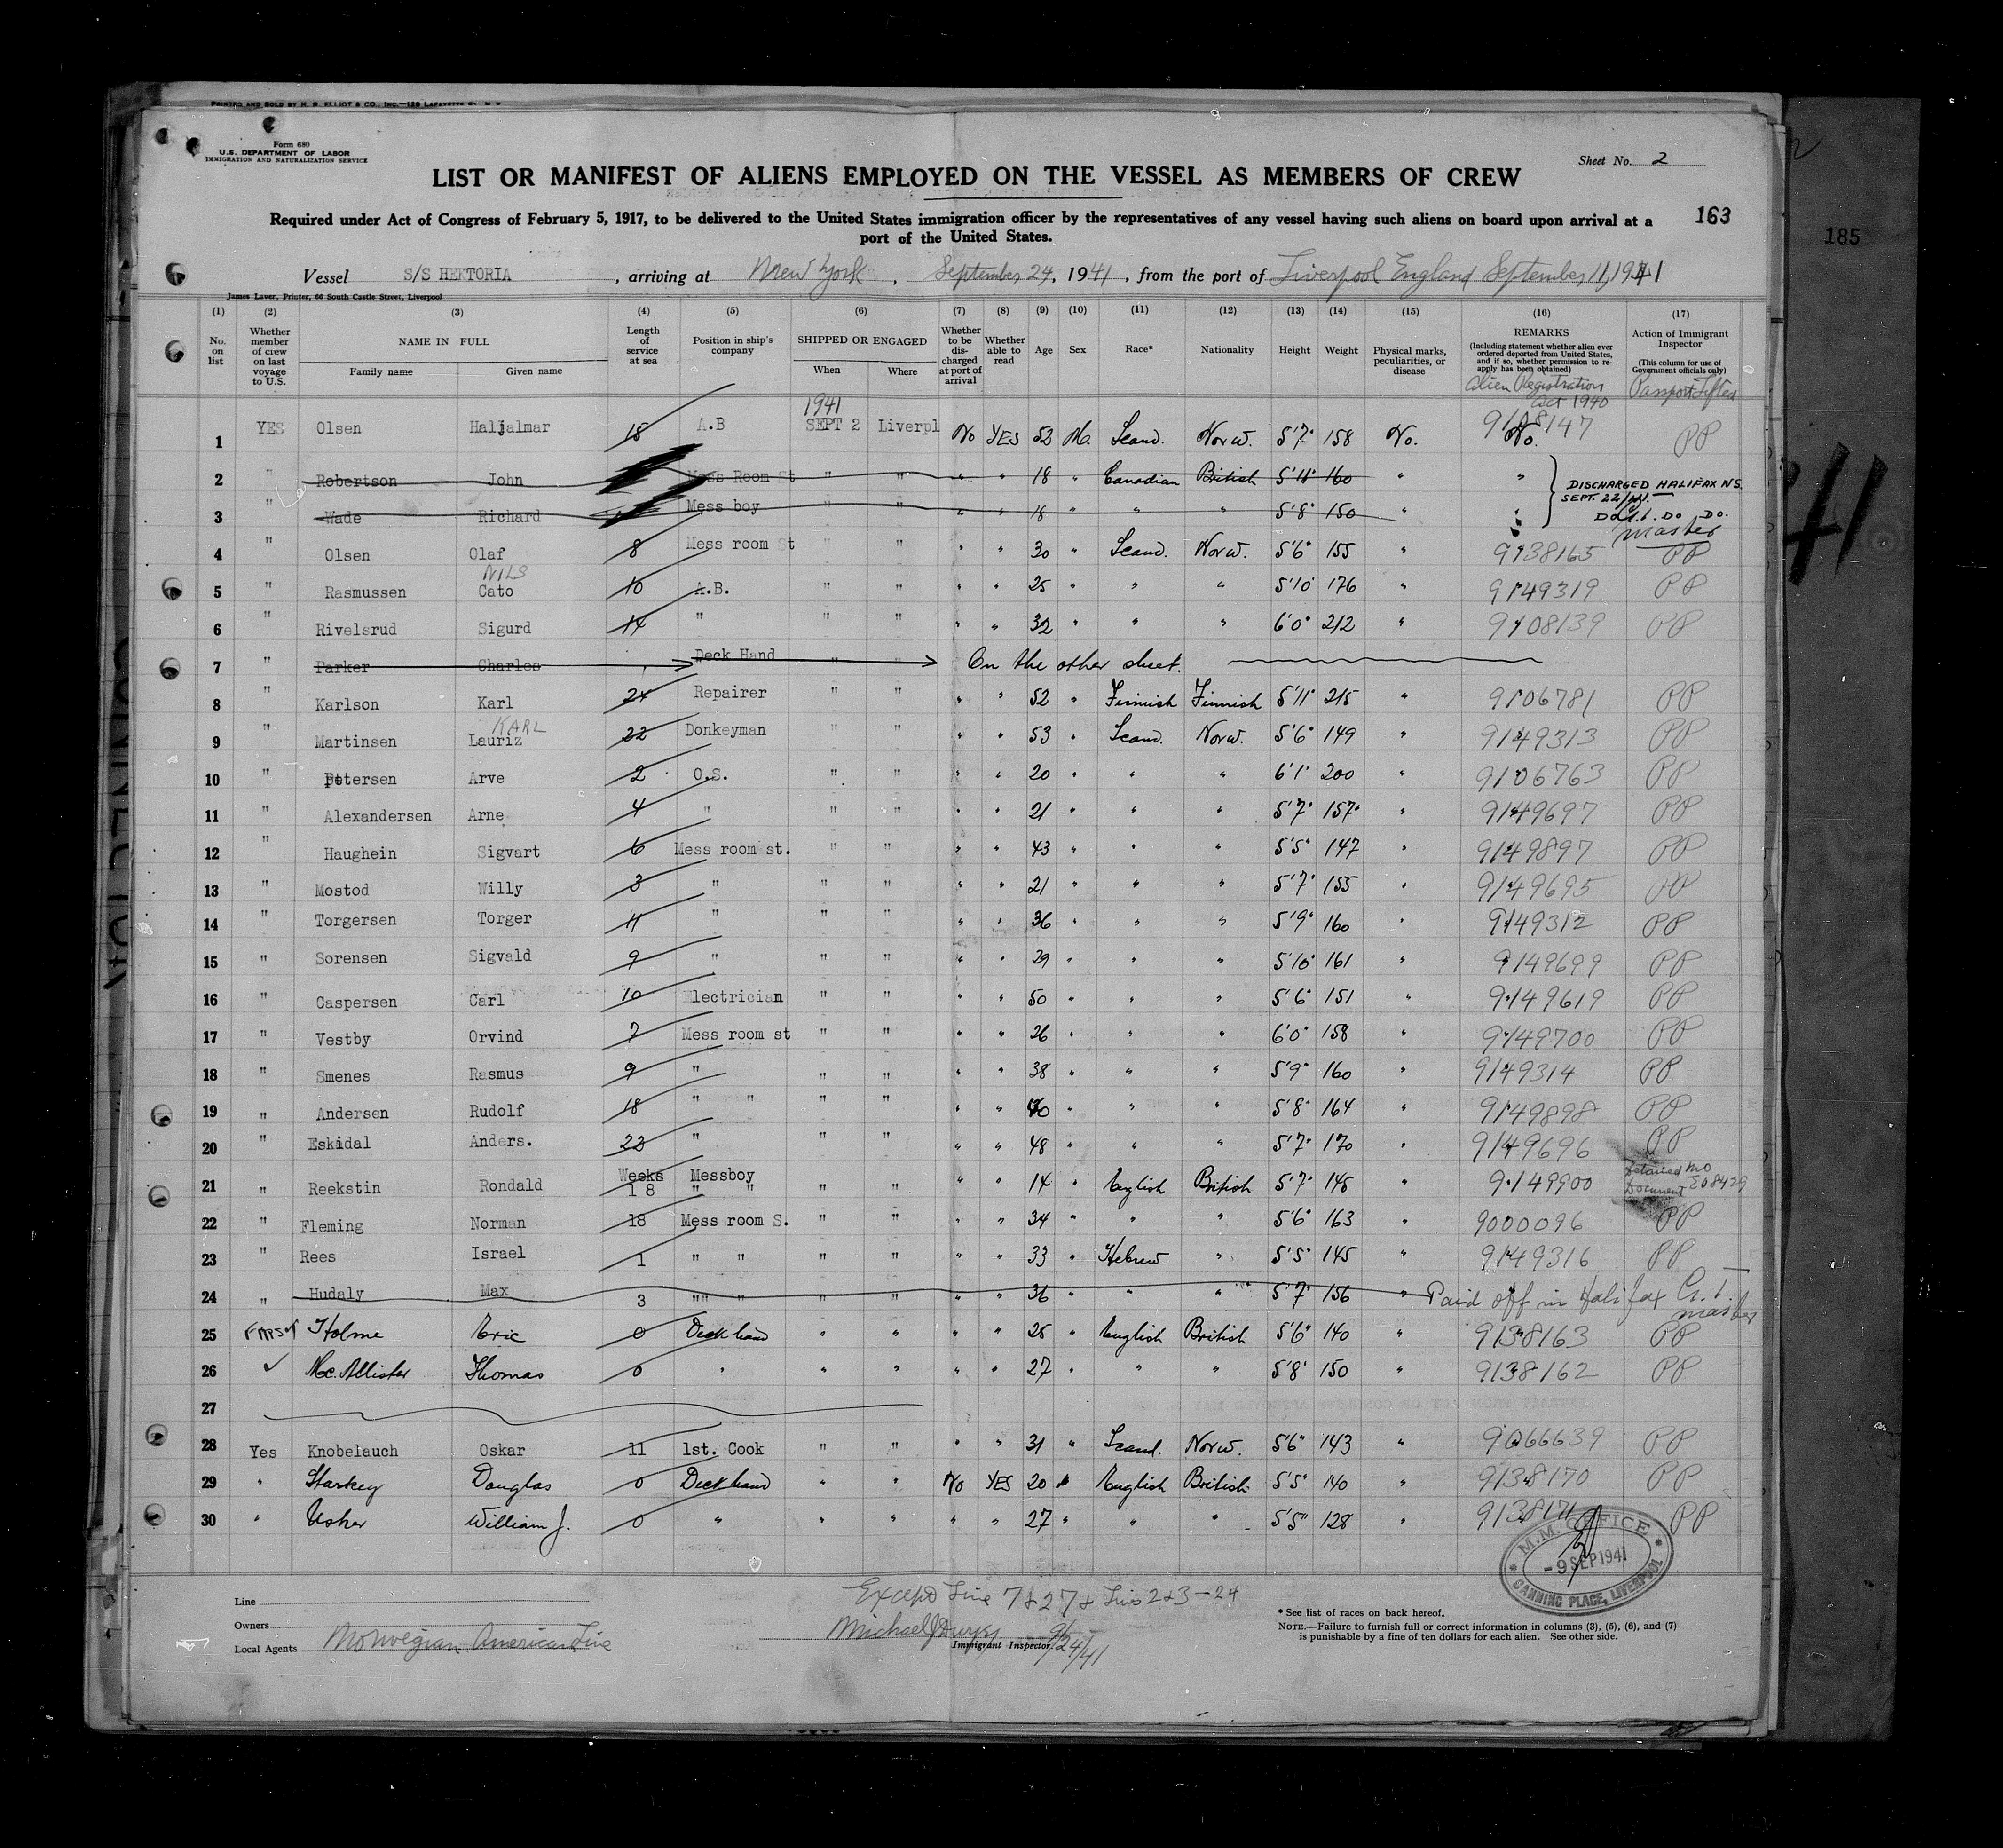 PRINTED AND SOLD BY H. R. ELLIOT & CO., INC.—129 LAFAYETTE ST. N Y
Form 680
U.S. DEPARTMENT OF LABOR
IMMIGRATION AND NATURALIZATION SERVICE
Sheet No. 2
LIST OR MANIFEST OF ALIENS EMPLOYED ON THE VESSEL AS MEMBERS OF CREW
Required under Act of Congress of February 5, 1917, to be delivered to the United States immigration officer by the representatives of any vessel having such aliens on board upon arrival at a
port of the United States.
163
185
Vessel S/S HEKTORIA, arriving at New York, September 24, 1941, from the port of Liverpool England September 11, 1941
James Laver, Printer, 66 South Castle Street, Liverpool
(1) (2) (3) (4) (5) (6) (7) (8) (9) (10) (11) (12) (13) (14) (15) (16) (17)
No. on list
Whether member of crew on last voyage to U.S.
NAME IN FULL
Family name Given name
Length of service at sea
Position in ship's company
SHIPPED OR ENGAGED
When Where
Whether to be discharged at port of arrival
Whether able to read
Age Sex Race* Nationality Height Weight
Physical marks, peculiarities, or disease
REMARKS
(Including statement whether alien ever ordered deported from United States, and if so, whether permission to reapply has been obtained)
Alien Registration Act 1940
Action of Immigrant Inspector
(This column for use of Government officials only)
Passport Lifted
1941
1 YES Olsen Haljalmar 15 A.B SEPT 2 Liverpl No YES 52 Mo. Scand. Norw. 5'7" 158 No. No. 9108147 PP
2 " Robertson John Mess Room St " " " " 18 " Canadian British 5'11" 160 " " DISCHARGED HALIFAX N.S. SEPT. 22/41.
3 " Wade Richard Mess boy " " " " 18 " " " 5'8" 150 " " Do Do. Master
4 " Olsen Olaf 8 Mess room St " " " " 30 " Scand. Norw. 5'6" 155 " 9138165 PP
5 " Rasmussen NILS Cato 10 A.B. " " " " 25 " " " 5'10" 176 " 9149319 PP
6 " Rivelsrud Sigurd 14 " " " " " 32 " " " 6'0" 212 " 9108139 PP
7 " Parker Charles Deck Hand " " On the other sheet.
8 " Karlson Karl 24 Repairer " " " " 52 " Finnish Finnish 5'11" 215 " 9106781 PP
9 " Martinsen KARL Lauriz 22 Donkeyman " " " " 53 " Scand. Norw. 5'6" 149 " 9149313 PP
10 " Petersen Arve 2 O.S. " " " " 20 " " " 6'1" 200 " 9106763 PP
11 " Alexandersen Arne 4 " " " " " 21 " " " 5'7" 157 " 9149697 PP
12 " Haughein Sigvart 6 Mess room st. " " " " 43 " " " 5'5" 147 " 9149897 PP
13 " Mostod Willy 3 " " " " " 21 " " " 5'7" 155 " 9149695 PP
14 " Torgersen Torger 11 " " " " " 36 " " " 5'9" 160 " 9149312 PP
15 " Sorensen Sigvald 9 " " " " " 29 " " " 5'10" 161 " 9149699 PP
16 " Caspersen Carl 10 Electrician " " " " 50 " " " 5'6" 151 " 9149619 PP
17 " Vestby Orvind 7 Mess room st " " " " 26 " " " 6'0" 158 " 9149700 PP
18 " Smenes Rasmus 9 " " " " " 38 " " " 5'9" 160 " 9149314 PP
19 " Andersen Rudolf 18 " " " " " " 40 " " " 5'8" 164 " 9149898 PP
20 " Eskidal Anders. 22 " " " " " 48 " " " 5'7" 170 " 9149696 PP
21 " Reekstin Rondald Weeks 18 Messboy " " " " " " 14 " English British 5'7" 145 " 9149900 Detained no Document
22 " Fleming Norman 18 Mess room S. " " " " 34 " " " 5'6" 163 " 9000096 PP
23 " Rees Israel 1 " " " " " " 33 " Hebrew " 5'5" 145 " 9149316 PP
24 " Hudaly Max 3 "" " " " " " 36 " " " 5'7" 156 " Paid off in Halifax Master
25 FIRST Holme Eric 0 Deck hand " " " " 25 " English British 5'6" 140 " 9138163 PP
26 ✓ Mc. Allister Thomas 0 " " " " " 27 " " " 5'8" 150 " 9138162 PP
27
28 Yes Knobelauch Oskar 11 1st. Cook " " " " 31 " Scand. Norw. 5'6" 143 " 9066639 PP
29 " Starkey Douglas 0 Deck hand " " No YES 20 " English British 5'5" 140 " 9138170 PP
30 " Usher William J. 0 " " " " " 27 " " " 5'5" 128 " 9138171 PP
M.M. OFFICE
-9 SEP 1941
CANNING PLACE, LIVERPOOL
Line
Owners
Local Agents Norwegian American Line
Except Line 7 & 27 & Lines 2 & 3 - 24
Immigrant Inspector. 9/24/41
* See list of races on back hereof.
NOTE.—Failure to furnish full or correct information in columns (3), (5), (6), and (7)
is punishable by a fine of ten dollars for each alien. See other side.